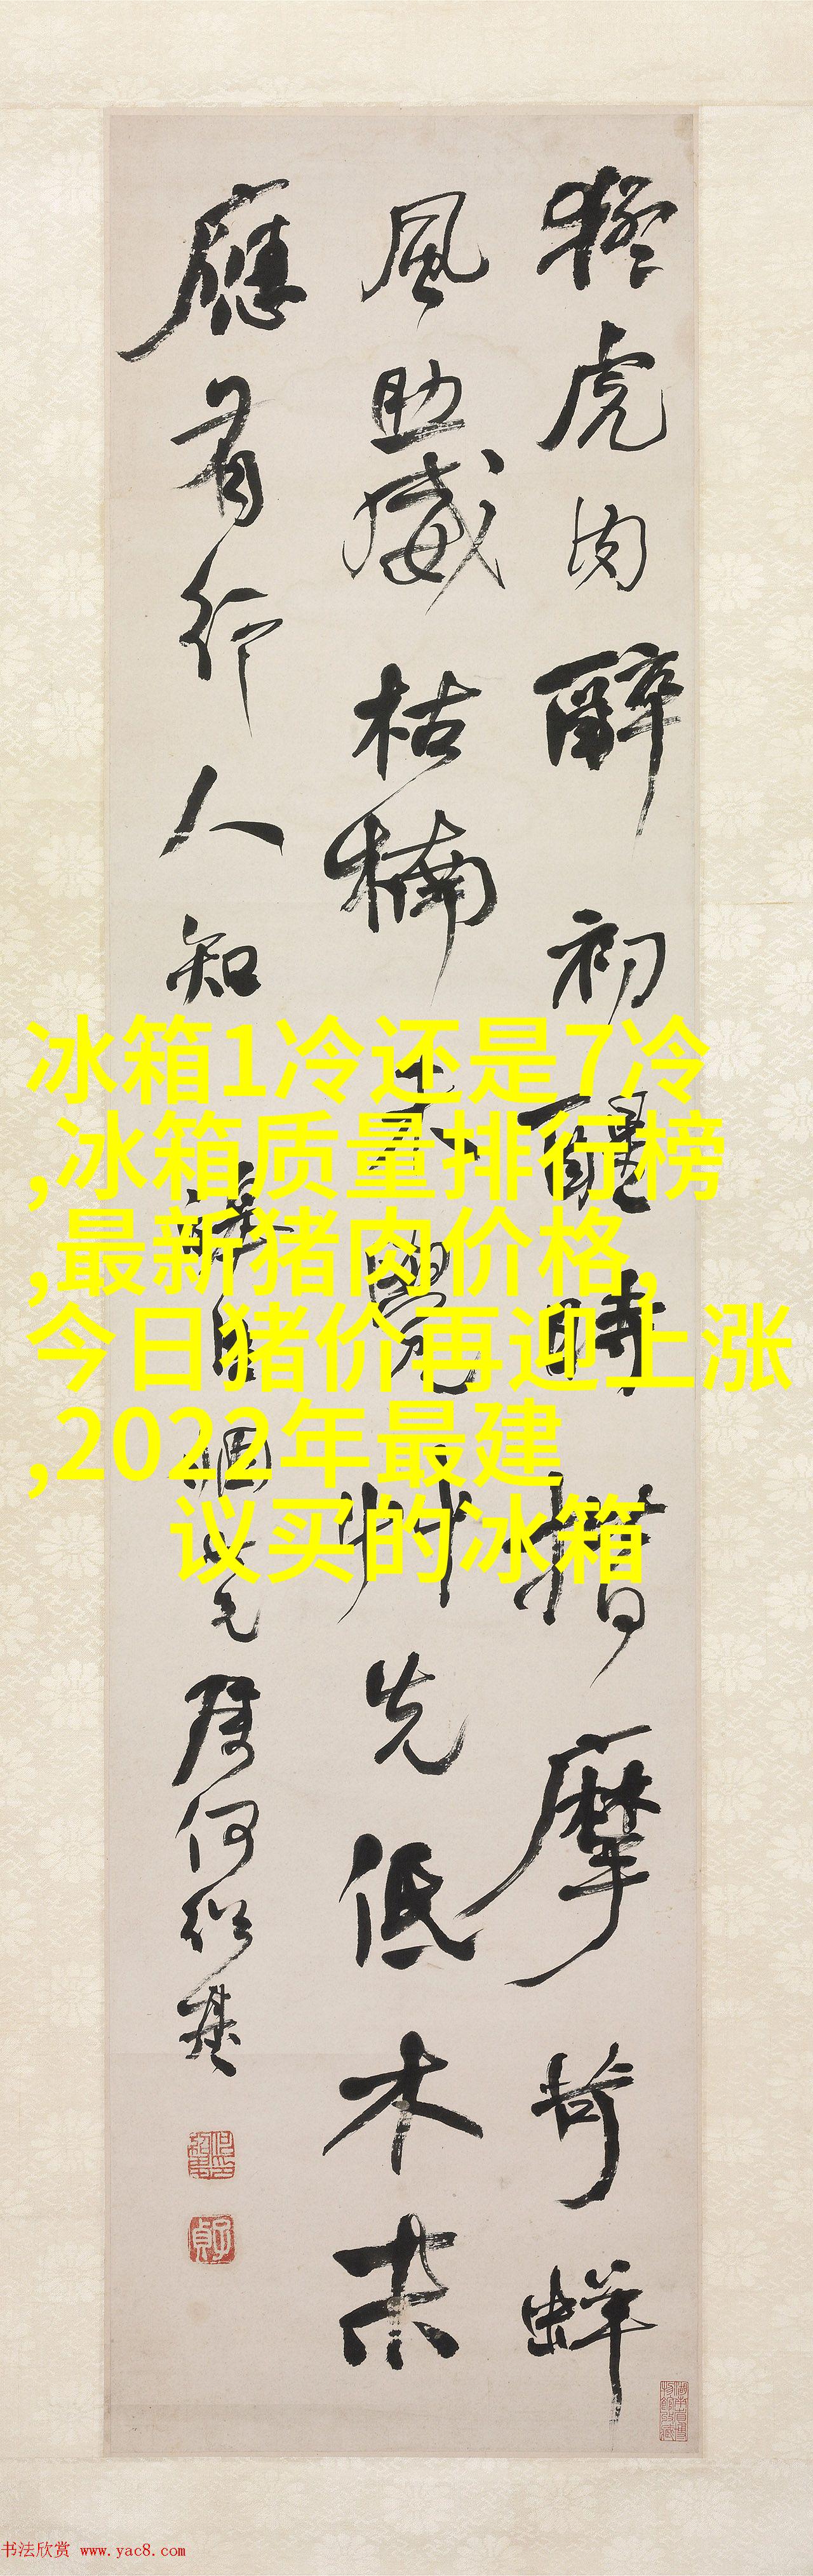 猛虎肉醉初醒時揩摩苛蛘
風助威枯楠未覺草先低木末
應有行人知
冰箱1冷还是7冷
,冰箱质量排行榜
,最新猪肉价格,
今日猪价再迎上涨
,2022年最建
议买的冰箱
何紹基
书法欣赏 www.yac8.com